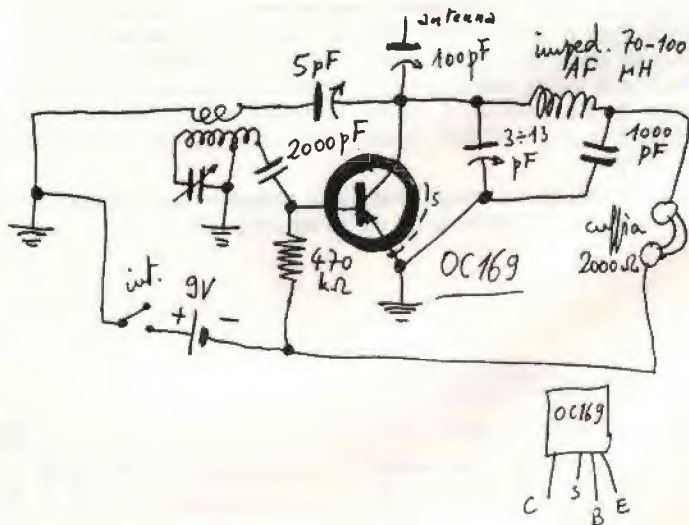 antenna
100pF
imped. 70-100
AF μH
5pF
2000pF
3÷13
pF
1000
pF
S
cuffia
2000Ω
470
kΩ
OC169
int.
9V
+ -
OC169
C S B E